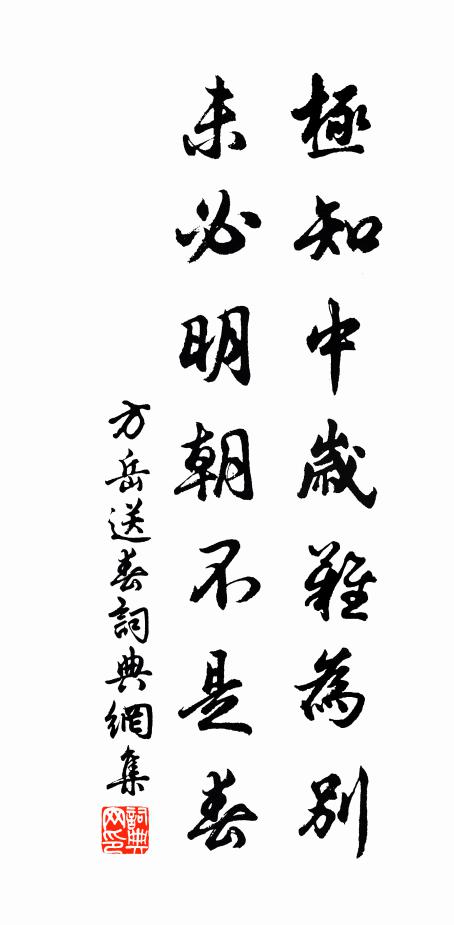 極知中歲難為別
未必明朝不是春
方岳送春詞典網集
詞典
网印